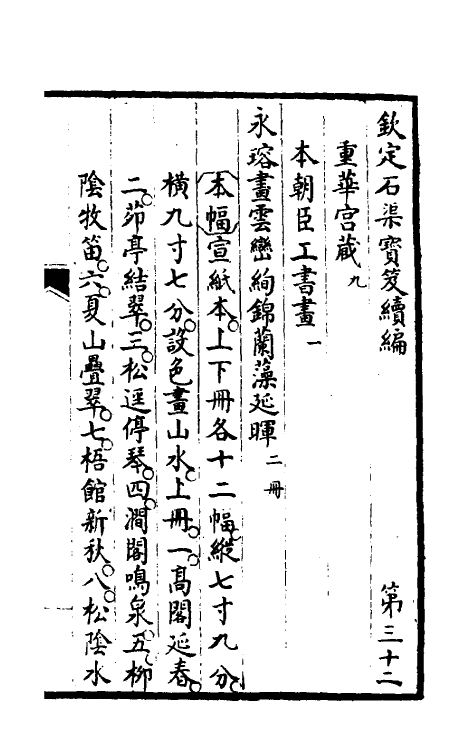 欽定石渠寶笈續編 第三十二
重華宮藏九
本朝臣工書畫一
永瑢畫雲巒絢錦蘭藻延暉二冊
本幅宣紙本。上下冊各十二幅。縱七寸九分。
橫九寸七分。設色畫山水。上冊。一高閣延春。
二。茆亭結翠。三。松逕停琴。四。澗閣鳴泉。五。柳
陰牧笛。六。夏山疊翠。七。梧館新秋。八。松陰水